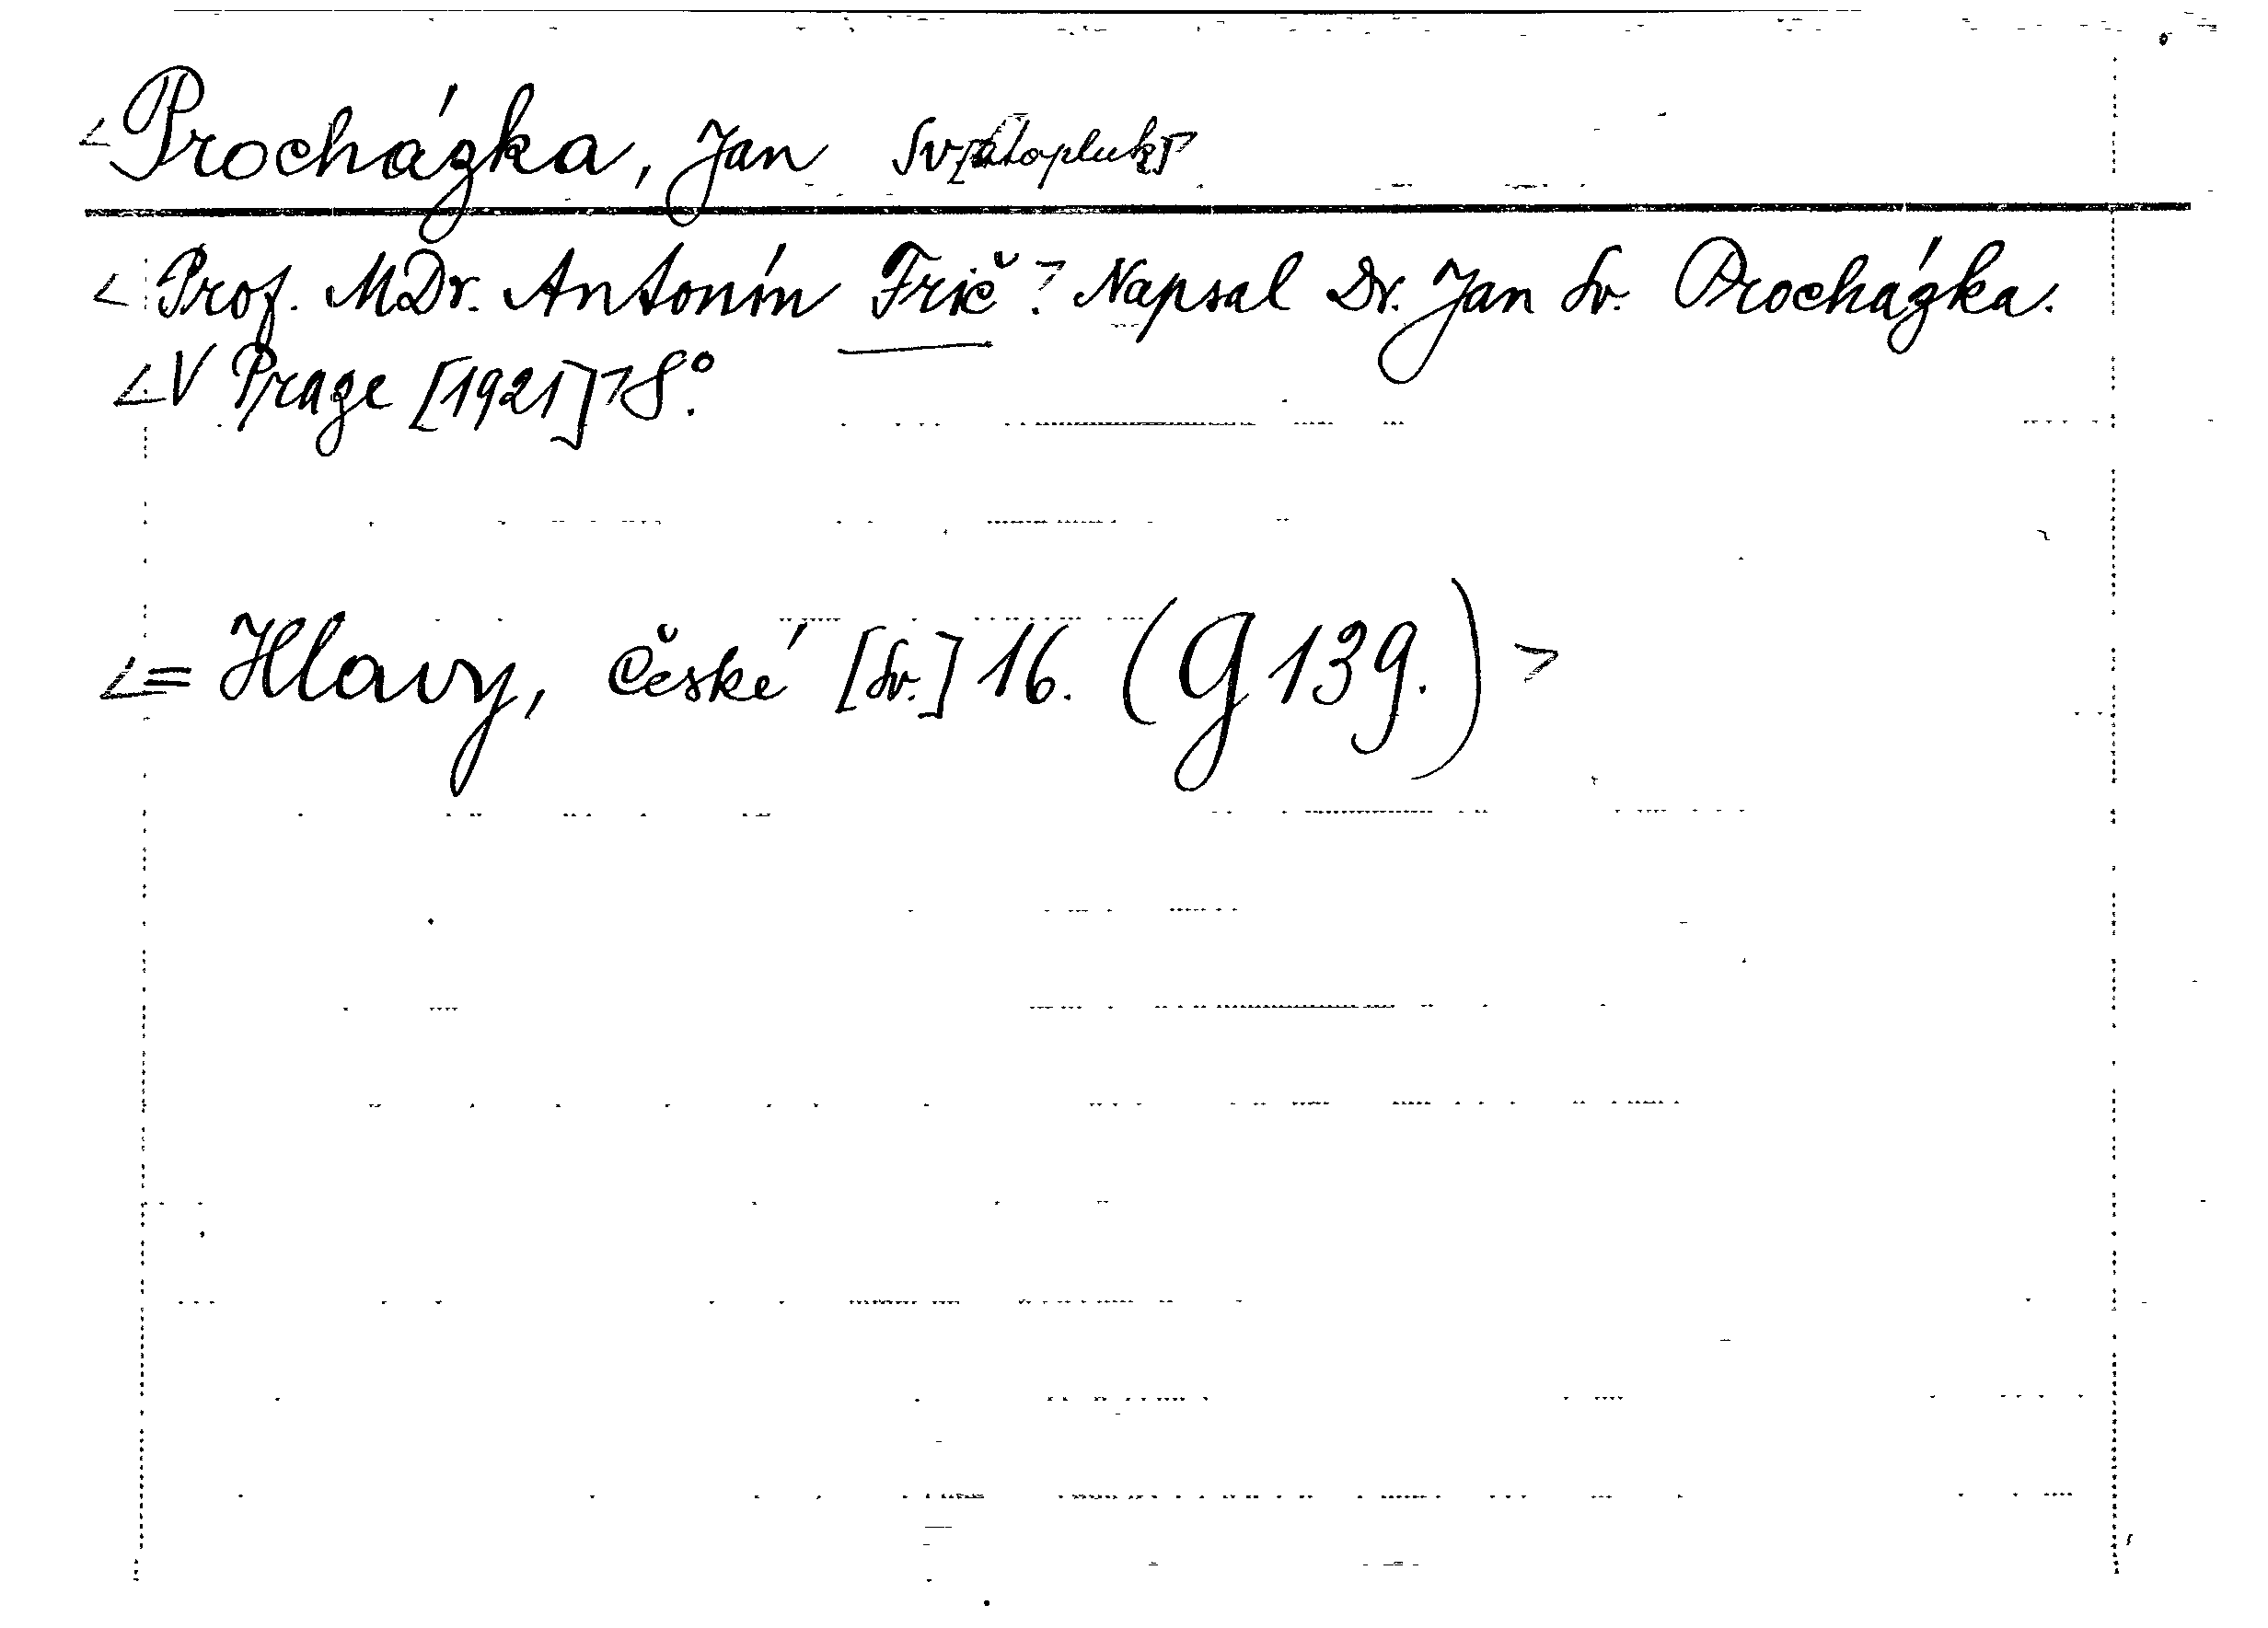 <Procházka, Jan Sv[atopluk]>
<Prof. MDr. Antonín Frič.> Napsal Dr. Jan Sv. Procházka.
<V Praze [1921]> 8°.
<= Hlavy, České [Sv.] 16. (G 139.)>